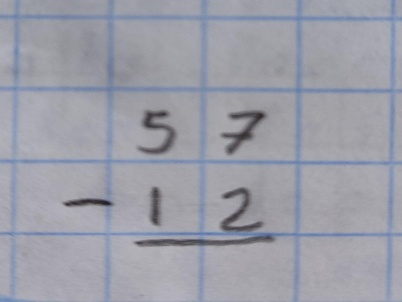 57
-12